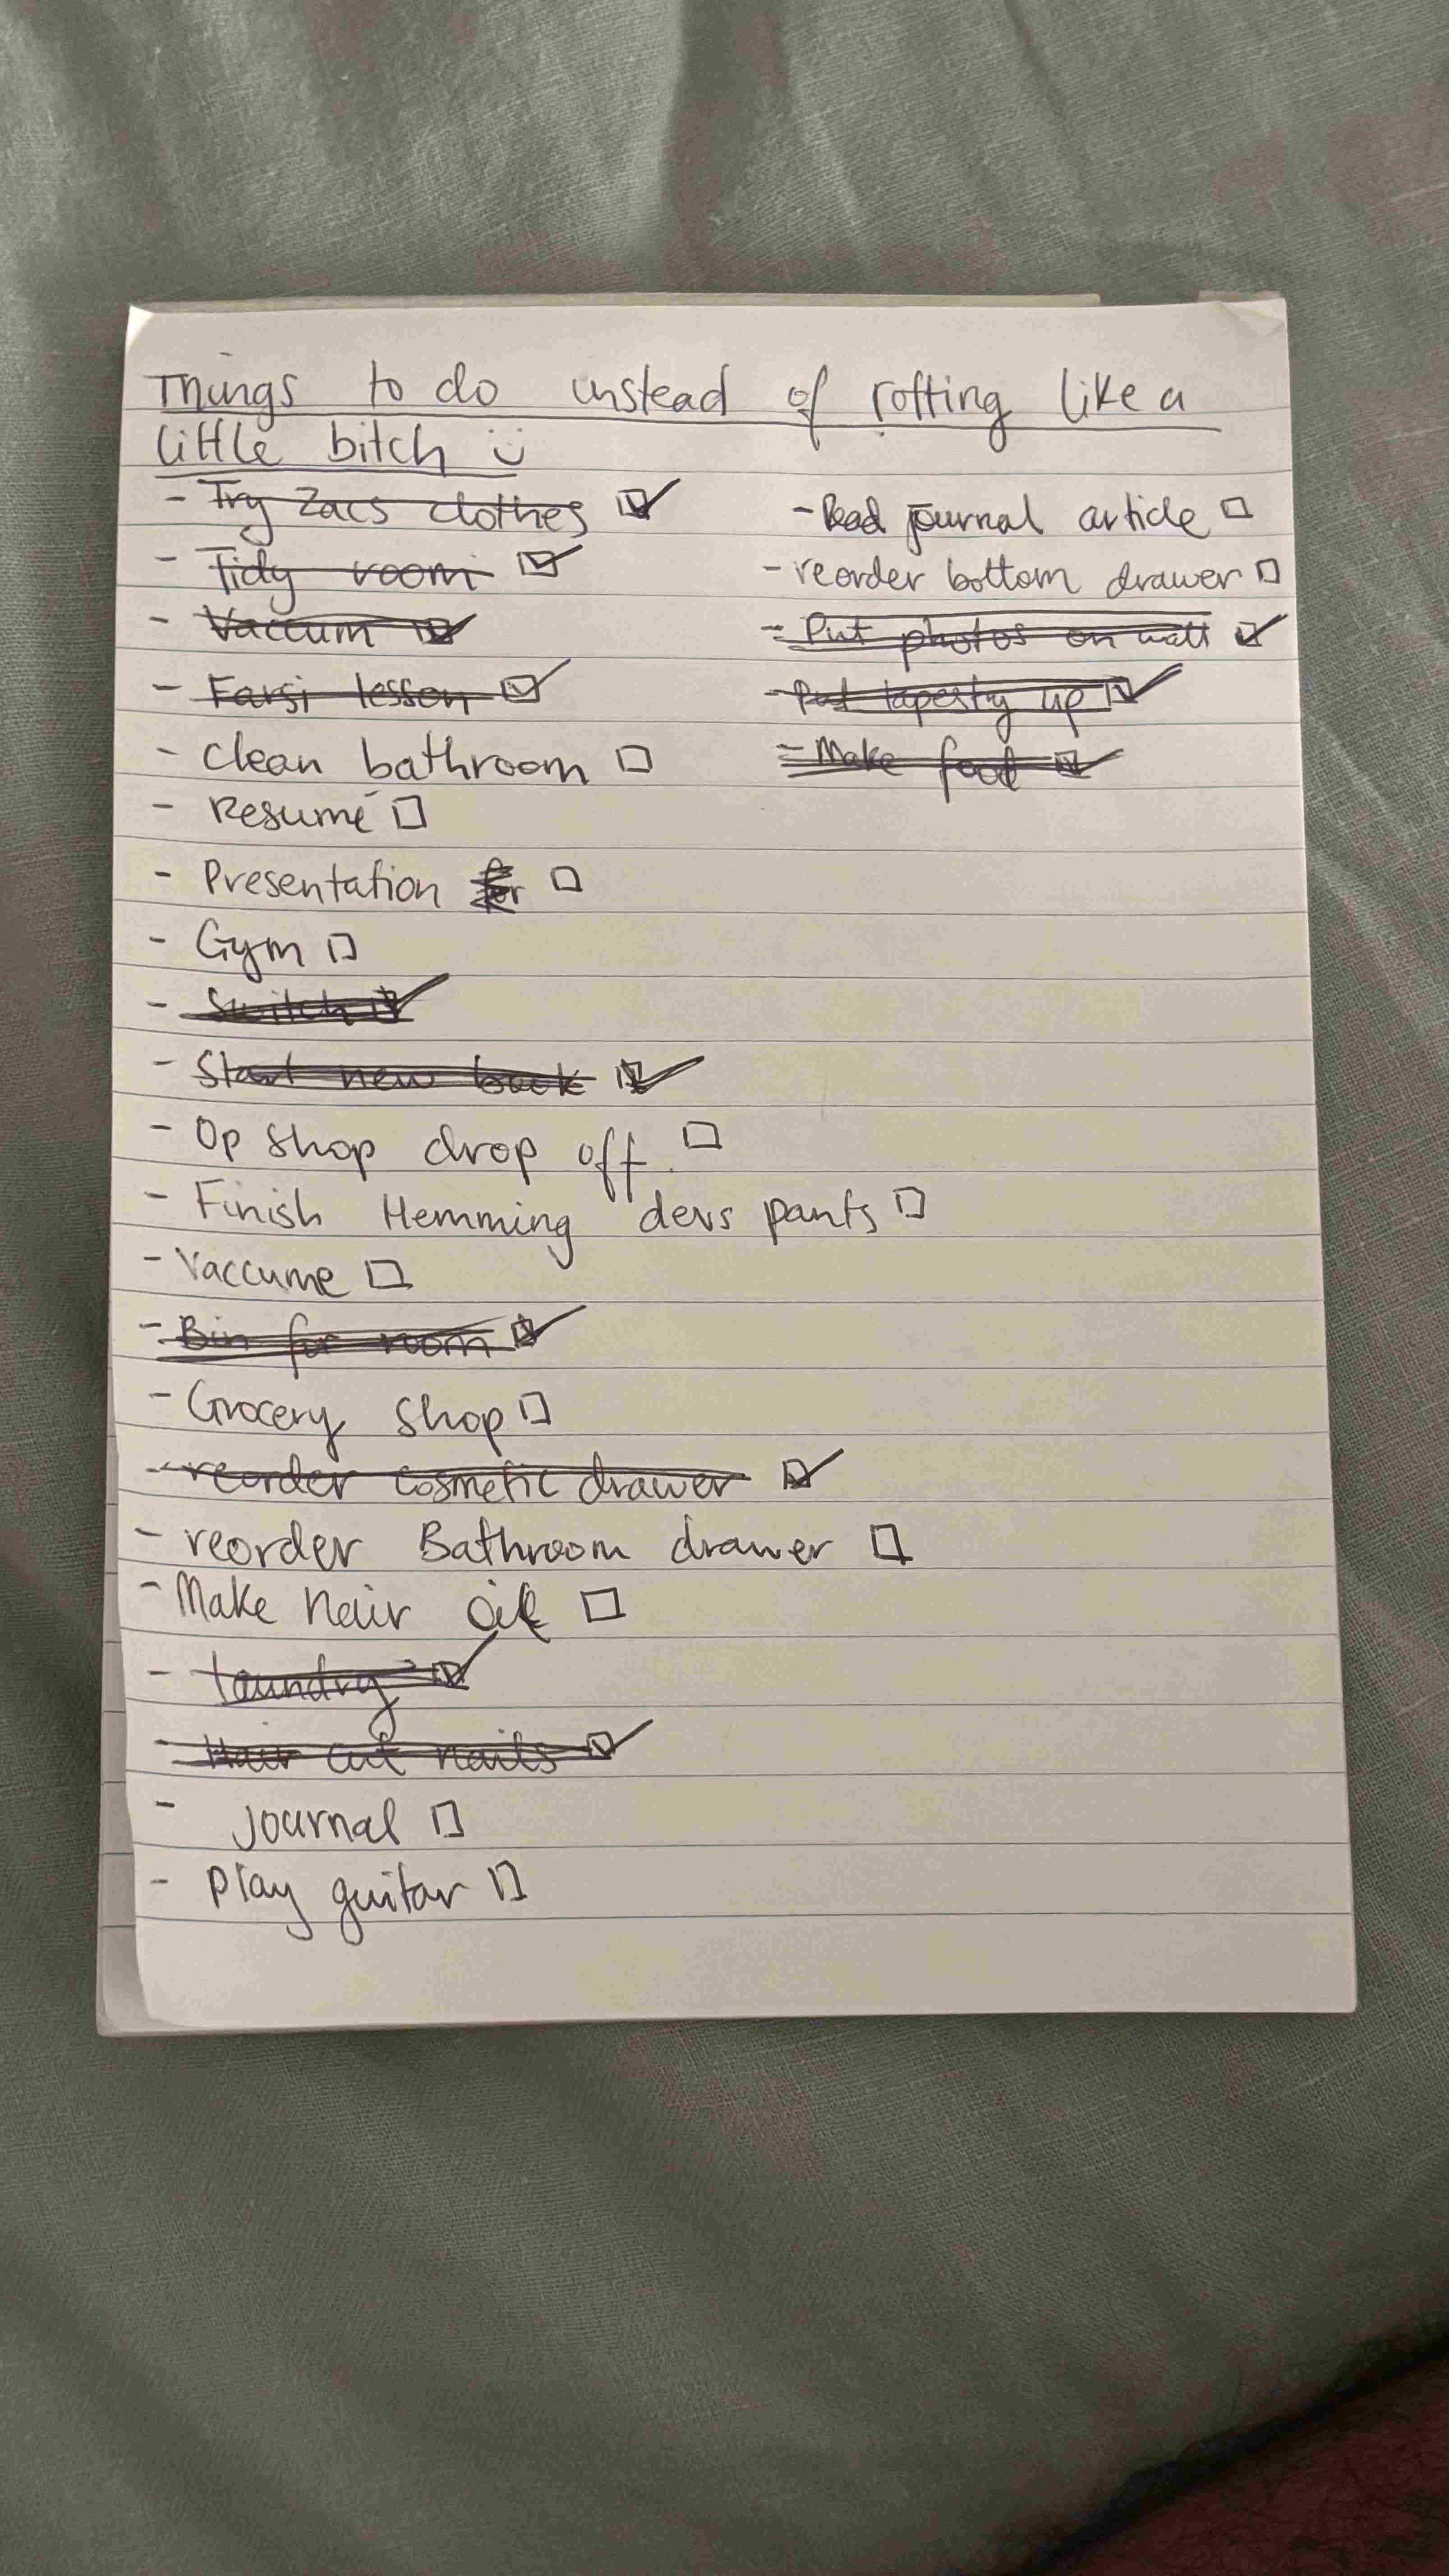 Things to do instead of rotting like a
little bitch
- Try Zacs clothes
- Tidy room
- Vaccum
- Farsi lesson
- Clean bathroom
- Resumé
- Presentation for
- Gym
- Switch
- Start new book
- Op shop drop off.
- Finish Hemming devs pants
- Vaccume
- Bin for room
- Grocery shop
- reorder cosmetic drawer
- reorder Bathroom drawer
- Make hair oil
- laundry
- Hair cut nails
- Journal
- Play guitar
- Read journal article
- reorder bottom drawer
- Put photos on wall
- Put tapesty up
- Make food